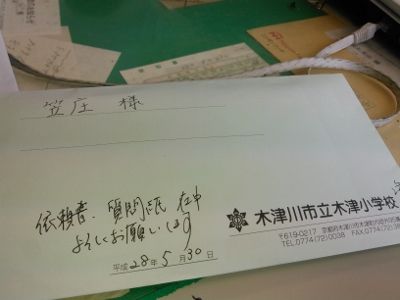 笠庄 様
依頼書、質問紙 在中
よろしくお願いします
平成 28 年 5 月 30 日
木津川市立木津小学校
〒619-0217
TEL.0774(72)0038 FAX.0774(72)